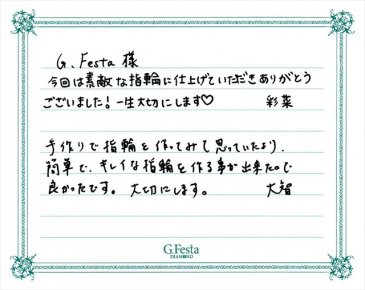 G.Festa 様
今回は素敵な指輪に仕上げていただきありがとう
ございました!一生大切にします♡ 彩菜
手作りで指輪を作ってみて思っていたより、
簡単で、キレイな指輪を作る事が出来たので
良かったです。大切にします。 大智
G.Festa
DIAMOND